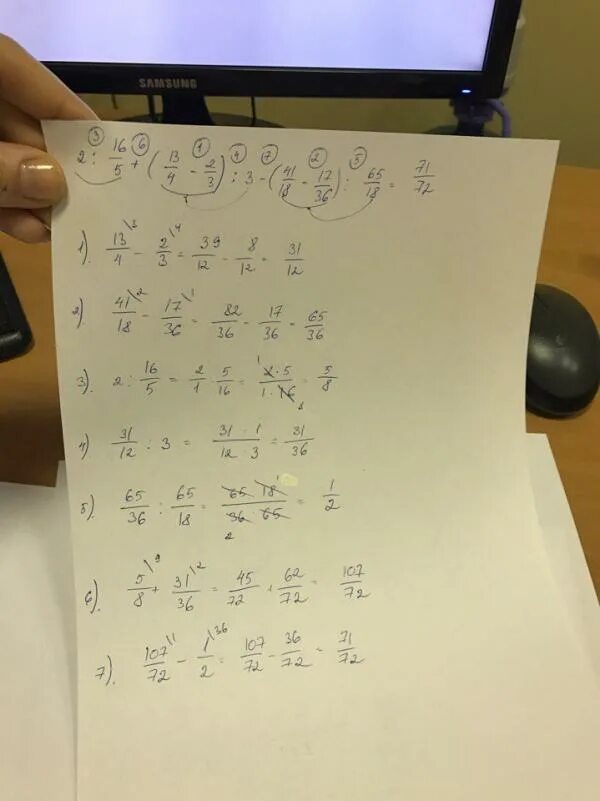 SAMSUNG
2 : 16/5 + (13/4 - 2/3) : 3 - (41/18 - 17/36) : 65/18 = 71/72
③ ⑥ ① ④ ⑦ ② ⑤
1). 13/4 \3 - 2/3 \4 = 39/12 - 8/12 = 31/12
2). 41/18 \2 - 17/36 \1 = 82/36 - 17/36 = 65/36
3). 2 : 16/5 = 2/1 · 5/16 = 2·5/1·16 = 5/8
4). 31/12 : 3 = 31·1/12·3 = 31/36
5). 65/36 : 65/18 = 65·18/36·65 = 1/2
6). 5/8 \9 + 31/36 \2 = 45/72 + 62/72 = 107/72
7). 107/72 \1 - 1/2 \36 = 107/72 - 36/72 = 71/72